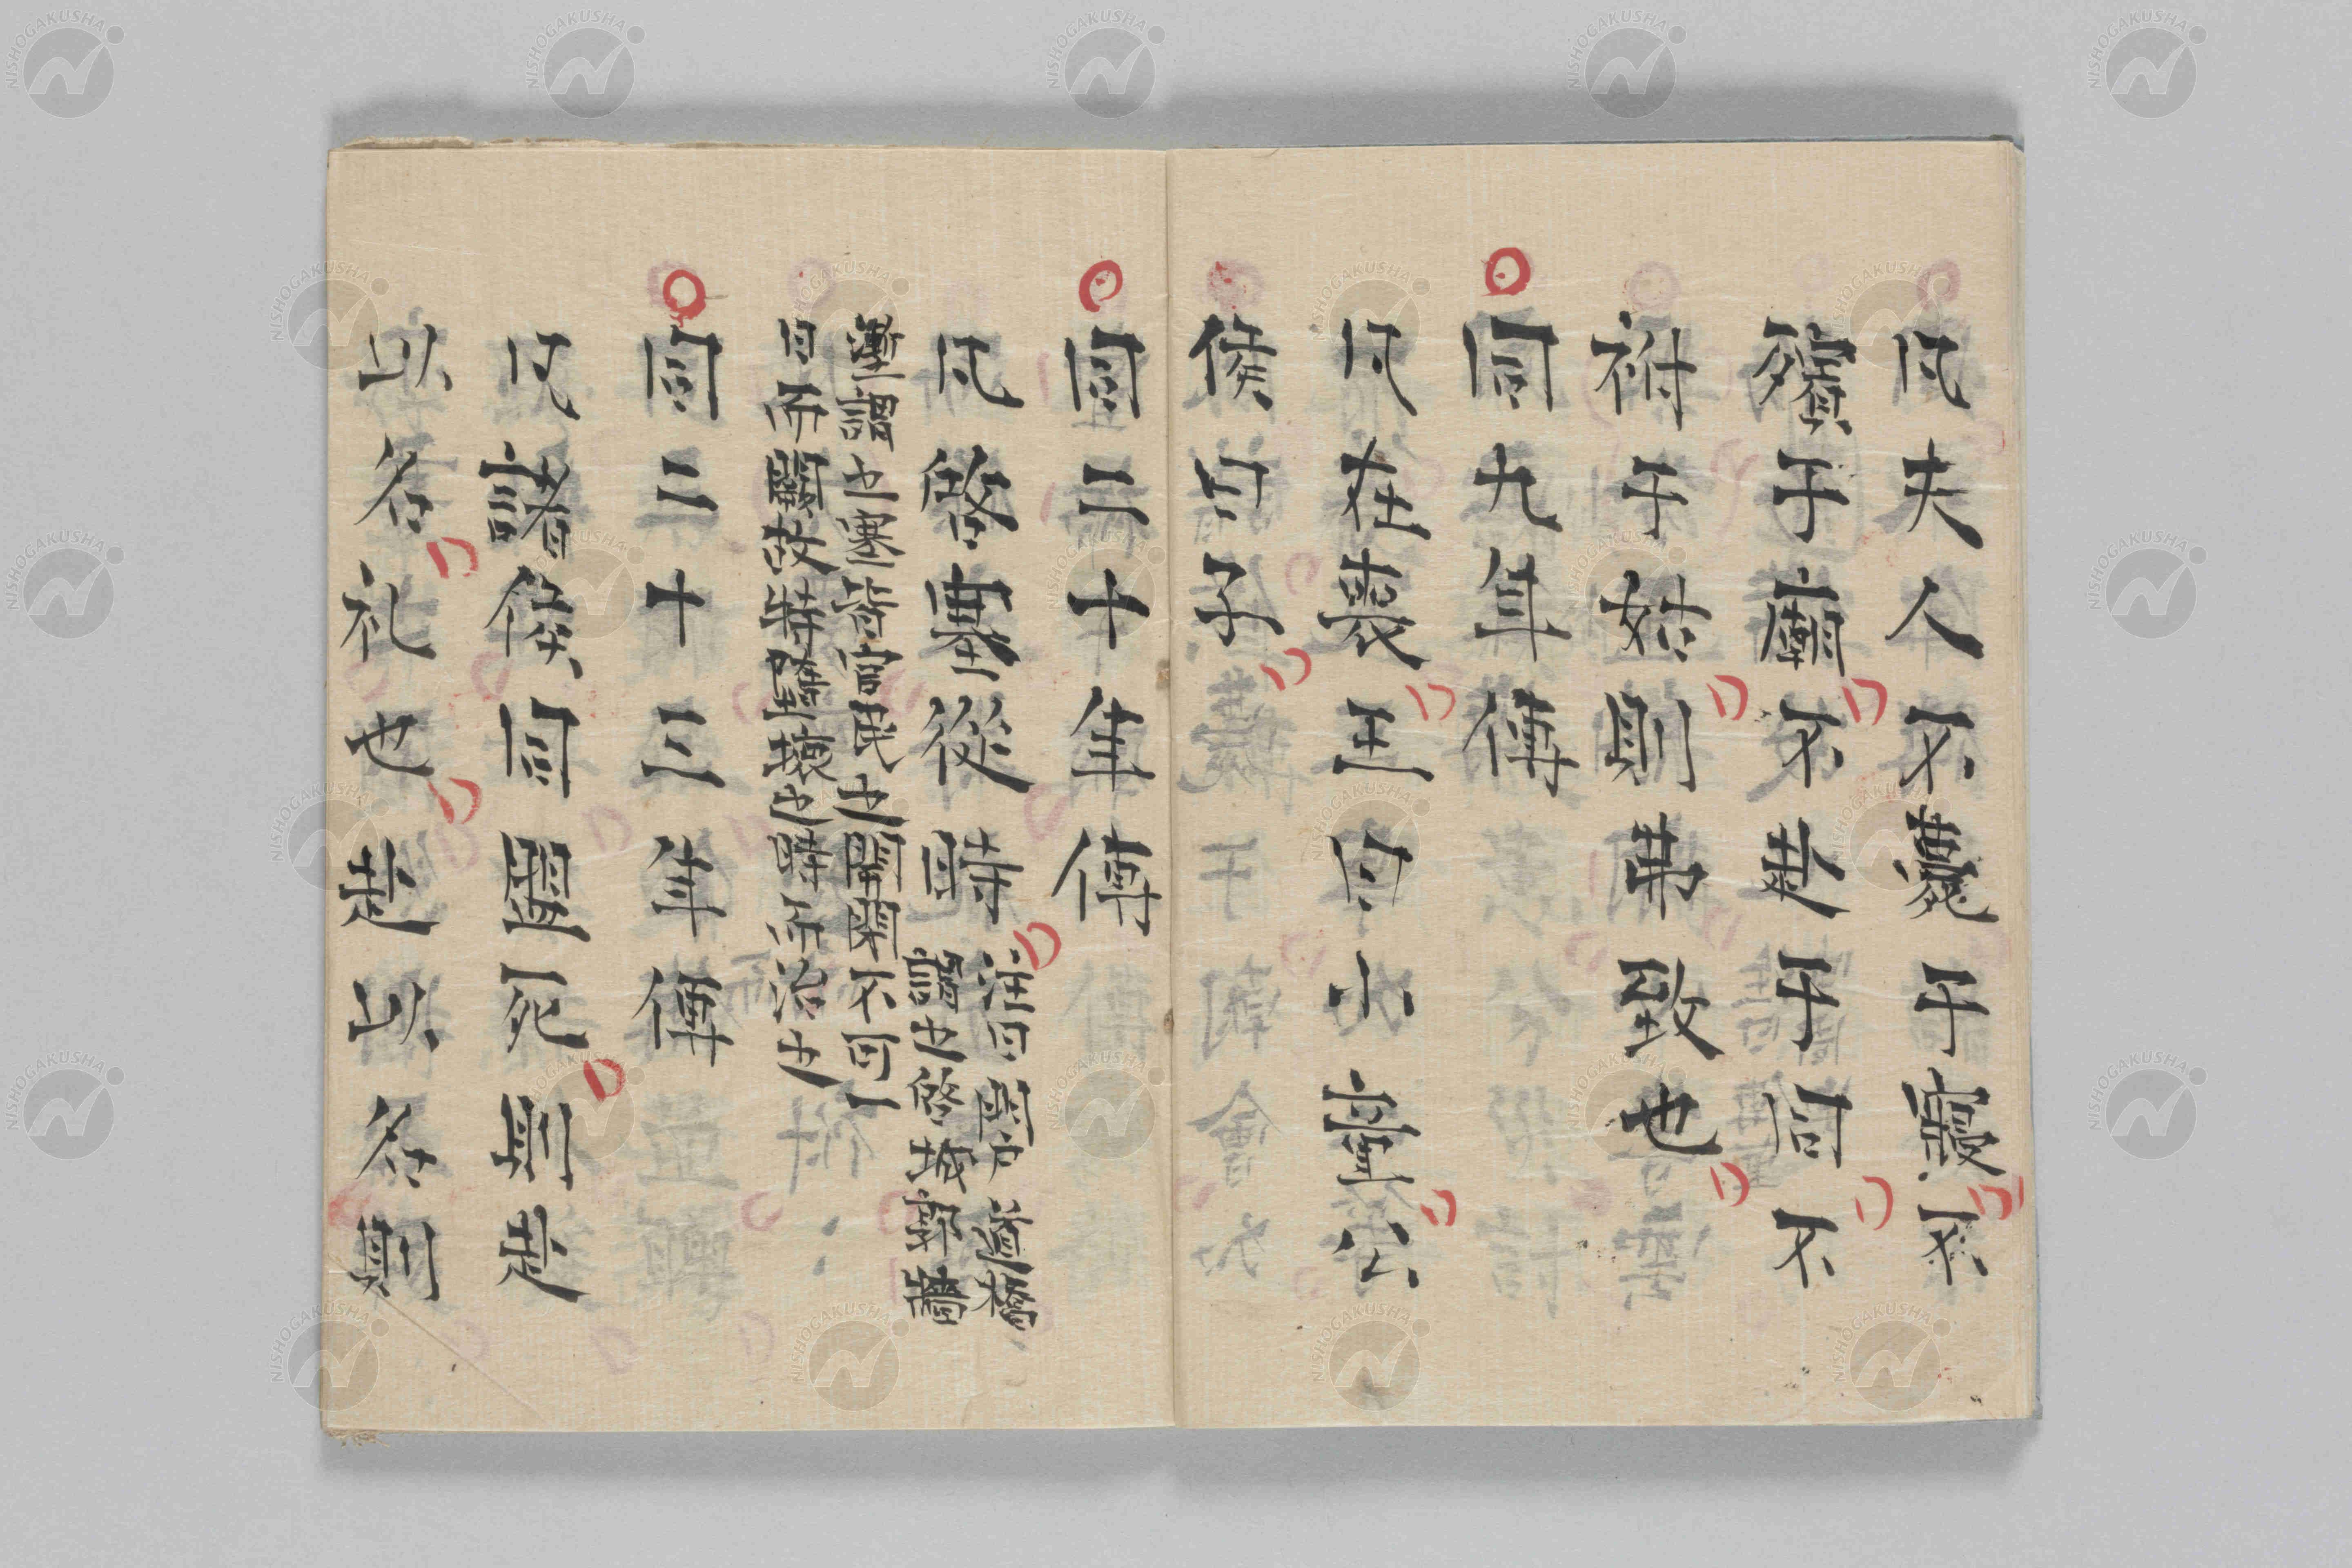 凡夫人不薨于寢不
殯于廟不赴于同不
祔于姑則弗致也
同九年傳
凡在喪王曰小童公
侯曰子
同二十年傳
凡啓塞從時注曰門戸道橋
謂之啓城郭墻
塹謂之塞皆官民之開閉不可一
日而闕故特隨壞之時而治之
同二十三年傳
凡諸侯同盟死則赴
以名礼也赴以名則
NISHOGAKUSHA